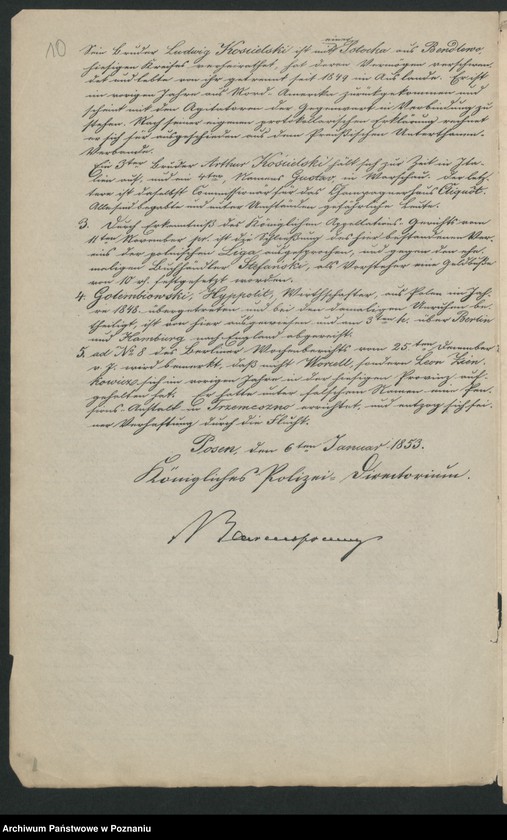 10
Sein Bruder Ludwig Koscielski ist mit einer Potocka aus Bendlewo,
hiesigen Kreises verheirathet, hat deren Vermögen verschwen-
det und lebte von ihr getrennt seit 1849 im Auslande. Er ist
im vorigen Jahre aus Nord-Amerika zurückgekommen und
scheint mit den Agitatoren der Gegenwart in Verbindung zu
stehen. Nach seiner eigenen protokollarischen Erklärung
er sich für ausgeschieden aus dem Preußischen Unterthanen-
Verbande.
Ein 3ter Bruder Arthur Koscielski hält sich zur Zeit in Ita-
lien auf, und ein 4ter, Namens Gustav, in Warschau. Der letz-
tere ist daselbst Commissionär für das Champagnerhaus Cliquôt.
Alle sind begabte und unter Umständen gefährliche Leute.
3. Durch Erkenntniß des Königlichen Appellations-Gerichts vom
11ten November pr. ist die Schließung des hier bestandenen Ver-
eins der polnischen Lega ausgesprochen, und gegen den ehe-
maligen Buchhändler Stefański, als Vorsteher eine Geldbuße
von 10 rh. festgesetzt worden.
4. Golembiowski, Hyppolit, Wirthschafter, aus Polen im Jah-
re 1848 übergetreten und bei den damaligen Unruhen be-
theiligt, ist von hier ausgewiesen und am 3ten d. über Berlin
und Hamburg nach England abgereist.
5. ad No 8 des Berliner Wochenberichts vom 25ten December
v. J. wird bemerkt, daß nicht Worcell, sondern Leon Zien-
kowicz sich im vorigen Jahre in der hiesigen Provinz auf-
gehalten hat. Er hatte unter falschem Namen eine Pen-
sions-Anstalt in Trzemeszno errichtet, und entzog sich sei-
ner Verhaftung durch die Flucht.
Posen, den 6ten Januar 1853.
Königliches Polizei-Directorium.
v Baerensprung
Archiwum Państwowe w Poznaniu